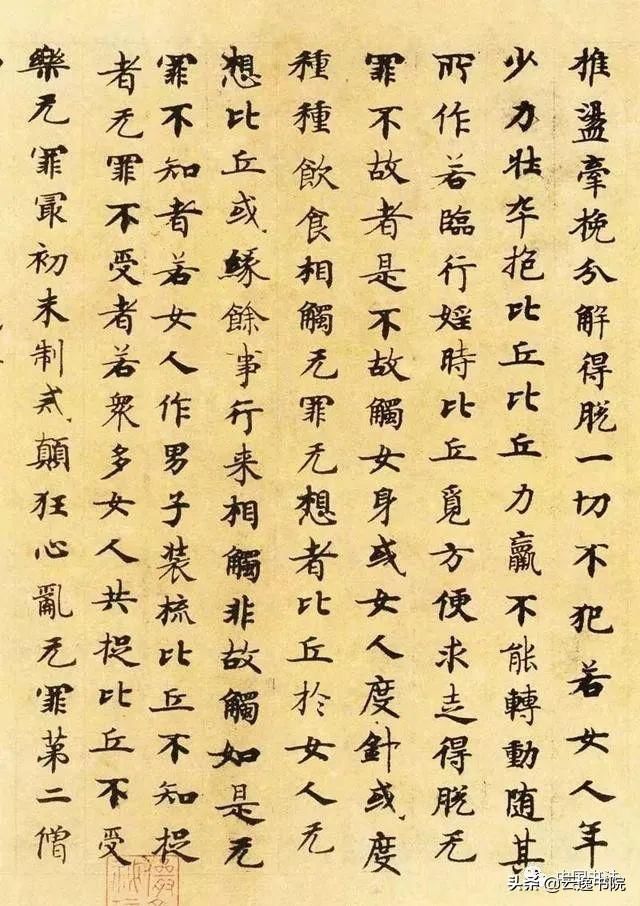 推盪牽挽分解得脫一切不犯若女人年
少力壯卒抱比丘比丘力羸不能轉動随其
所作若臨行婬時比丘覓方便求走得脫无
罪不故者是不故觸女身或女人度針或度
種種飲食相觸无罪无想者比丘於女人无
想比丘或緣餘事行来相觸非故觸如是无
罪不知者若女人作男子装梳比丘不知捉
者无罪不受者若衆多女人共捉比丘不受
樂无罪冣初未制弍顛狂心亂无罪第二僧
头条 @云逸书院